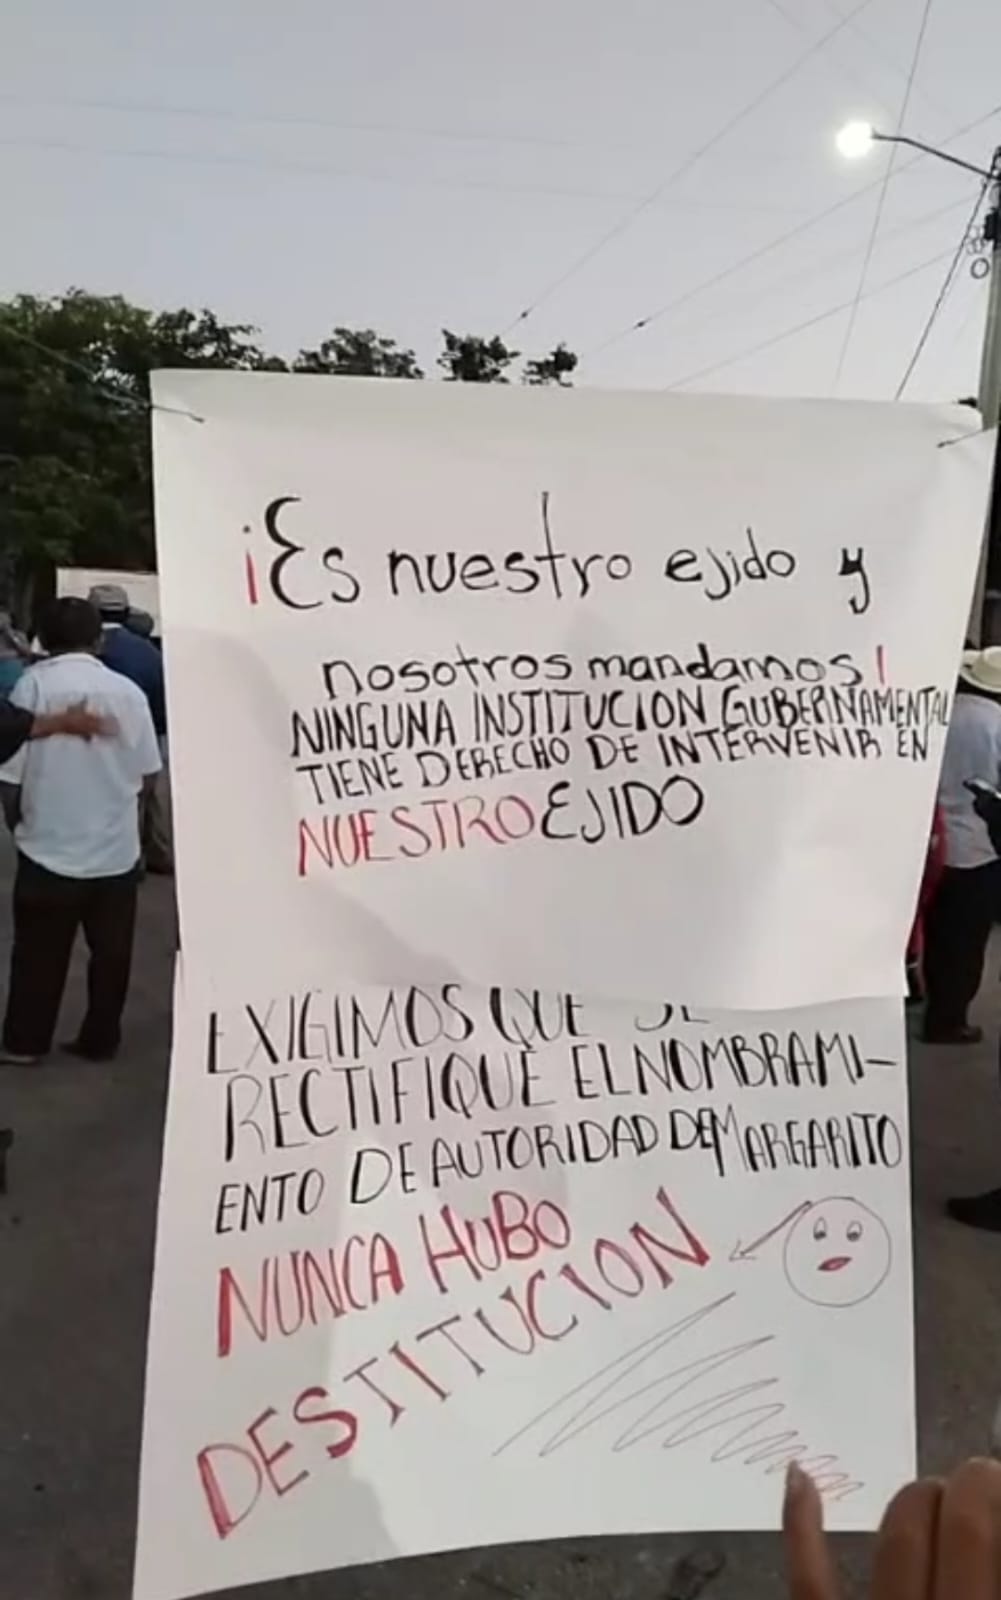 ¡Es nuestro ejido y
nosotros mandamos!
NINGUNA INSTITUCION GUBERNAMENTAL
TIENE DERECHO DE INTERVENIR EN
NUESTRO EJIDO
EXIGIMOS QUE SE
RECTIFIQUE EL NOMBRAMI-
ENTO DE AUTORIDAD DE MARGARITO
NUNCA HUBO
DESTITUCION